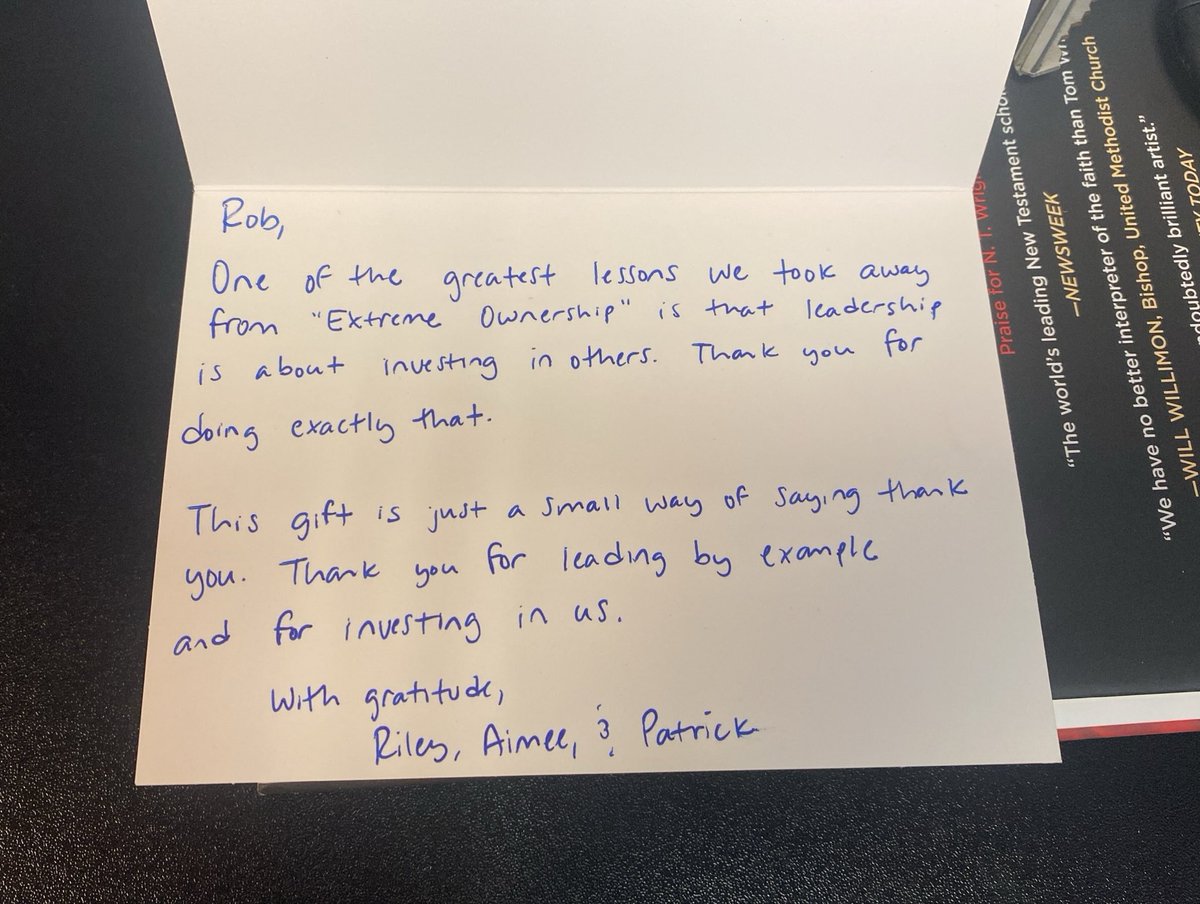 Rob,
One of the greatest lessons we took away
from "Extreme Ownership" is that leadership
is about investing in others. Thank you for
doing exactly that.
This gift is just a small way of saying thank
you. Thank you for leading by example
and for investing in us.
With gratitude,
Riley, Aimee, & Patrick
Praise for N. T.
"The world's leading New Testament
—NEWSWEEK
"We have no better interpreter of the faith than Tom
—WILL WILLIMON, Bishop, United Methodist Church
brilliant artist."
TODAY